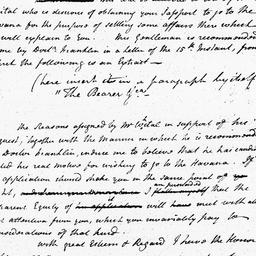 ital who is desirous of obtaining your Passport to go to the
avana for the purpose of settling some affairs there which
will explain to you. This Gentleman is recommended
me by Doctr. Franklin in a letter of the 15th Instant, from
which the following is an Extract—
(here insert it in a paragraph by itself
"The Bearer &ca
The Reasons assigned by Mr Vital in support of his
quest, together with the Manner in which he is recommend
Doctor Franklin, induce me to believe that he has candid
ted his real motives for wishing to go to the Havana. If
application should make in the same point of
ht, I that the
parent Equity of will met with all
at attention from you, which you invariably pay to
nsiderations of that kind.
with great Esteem & Regard I have the Honor